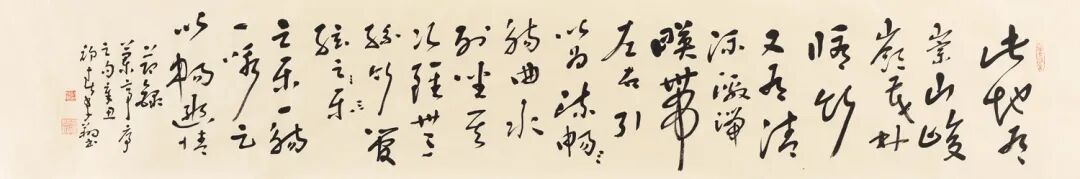 此地有
崇山峻
嶺茂林
脩竹
又有清
流激湍
暎帶
左右引
以為流暢
觴曲水
列坐其
次雖無
絲竹管
絃之樂
一觴
一詠
以暢幽情
節錄
蘭亭序
之句辛丑